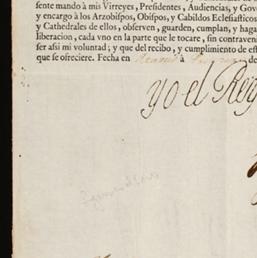 sente mando à mis Virreyes, Presidentes, Audiencias, y Gov
y encargo à los Arzobispos, Obispos, y Cabildos Eclesiasticos
y Cathedrales de ellos, observen, guarden, cumplan, y haga
liberacion, cada vno en la parte que le tocare, sin contraveni
ser asi mi voluntad; y que del recibo, y cumplimiento de est
que se ofreciere. Fecha en à de
yo el Rey